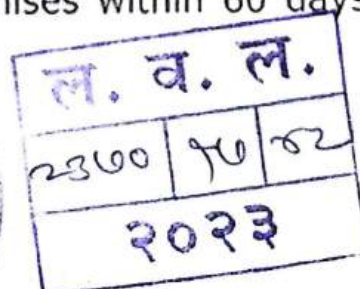 nises within 60 days
ल. व. ल.
२३७० १७ ४२
२०२३